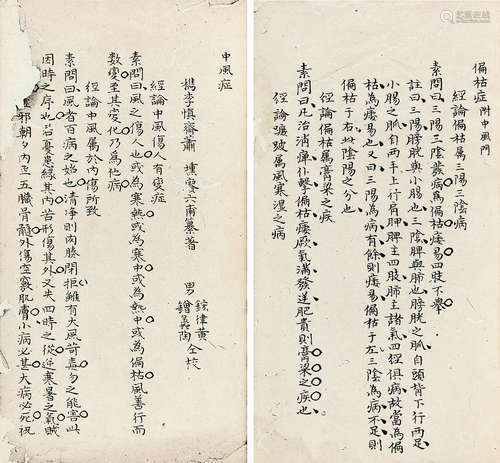 中風症
檇李慎齋蕭壎賡六甫纂著
男
鋐律黃
鐠義陶
仝校
經論中風傷人有變症
素問曰風之傷人也或為寒熱或為寒中或為熱中或為偏枯風善行而
數變至其變化乃為他病
經論中風屬於內傷所致
素問曰風者百病之始也清凈則肉腠閉拒雖有大風苛毒勿之能害此
因時之序也若憂患緣其內苦形傷其外又失四時之從逆寒暑之氣賊
邪朝夕內至五臟骨髓外傷空竅肌膚小病必甚大病必死祝
偏枯症 附中風門
經論偏枯屬三陽三陰病
素問曰三陽三陰發病為偏枯痿易四肢不舉
註曰三陽膀胱與小腸也三陰脾與肺也膀胱之脉自頭背下行兩足
小腸之脉自兩手上行肩胛脾主四肢肺主諸氣四經俱病故當為偏
枯為痿易也又曰三陽為病有餘則痿易偏枯于左三陰為病不足則
偏枯于右此陰陽之分也
經論偏枯屬膏粱之疾
素問曰凡治消癉仆擊偏枯痿厥氣滿發逆肥貴則膏粱之疾也
經論蹠跛屬風寒濕之病